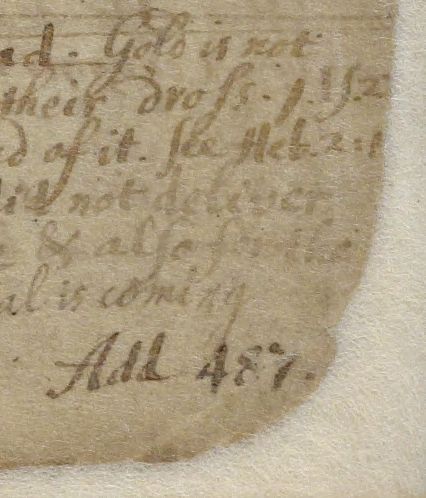 d. Gold is not
their dross. J. 15.2
d of it. see Heb. 2. 1
not deliver
& also for the
al is coming
Add 487.